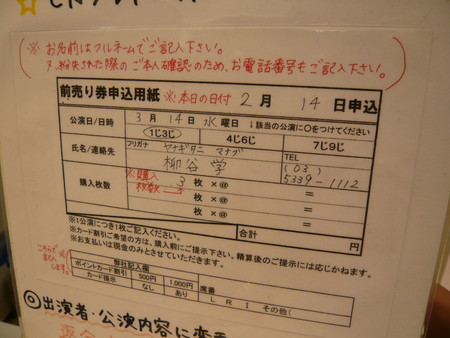 (※ お名前はフルネームでご記入下さい。
紛失された際のご本人確認のため、お電話番号もご記入下さい。)
前売り券申込用紙 ※本日の日付 2月 14日申込
公演日/日時 3月 14日 水曜日 ↓該当の公演に○をつけてください
1じ3じ 4じ6じ 7じ9じ
フリガナ ヤナギタニ マナブ TEL
氏名/連絡先 柳谷 学 (03) 5339-1112
※購入枚数→
購入枚数 3 枚 × @ =
枚 × @ =
枚 × @ =
※1公演につき1枚ご記入ください。 合計 円
※カード割引ご希望の方は、購入前にご提示下さい。精算後のご提示には応じかねます。
※お支払いは現金のみとさせていただきます。
こちらで記入します。
弊社記入欄
ポイントカード割引 500円 1,000円 席番
カード提示 なし あり L R I その他(
◎出演者・公演内容に変更